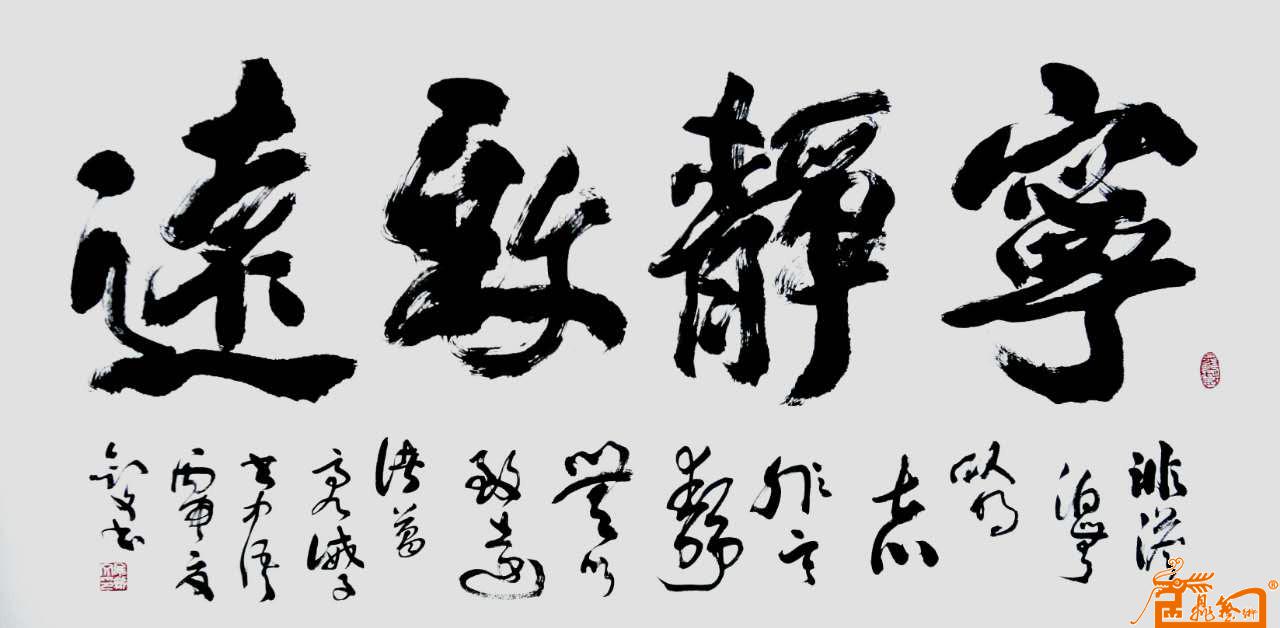 寧靜致遠
非淡
泊無
以明
志
非寧
靜
無以
致遠
諸葛
亮誡子
書中語
丙申夏